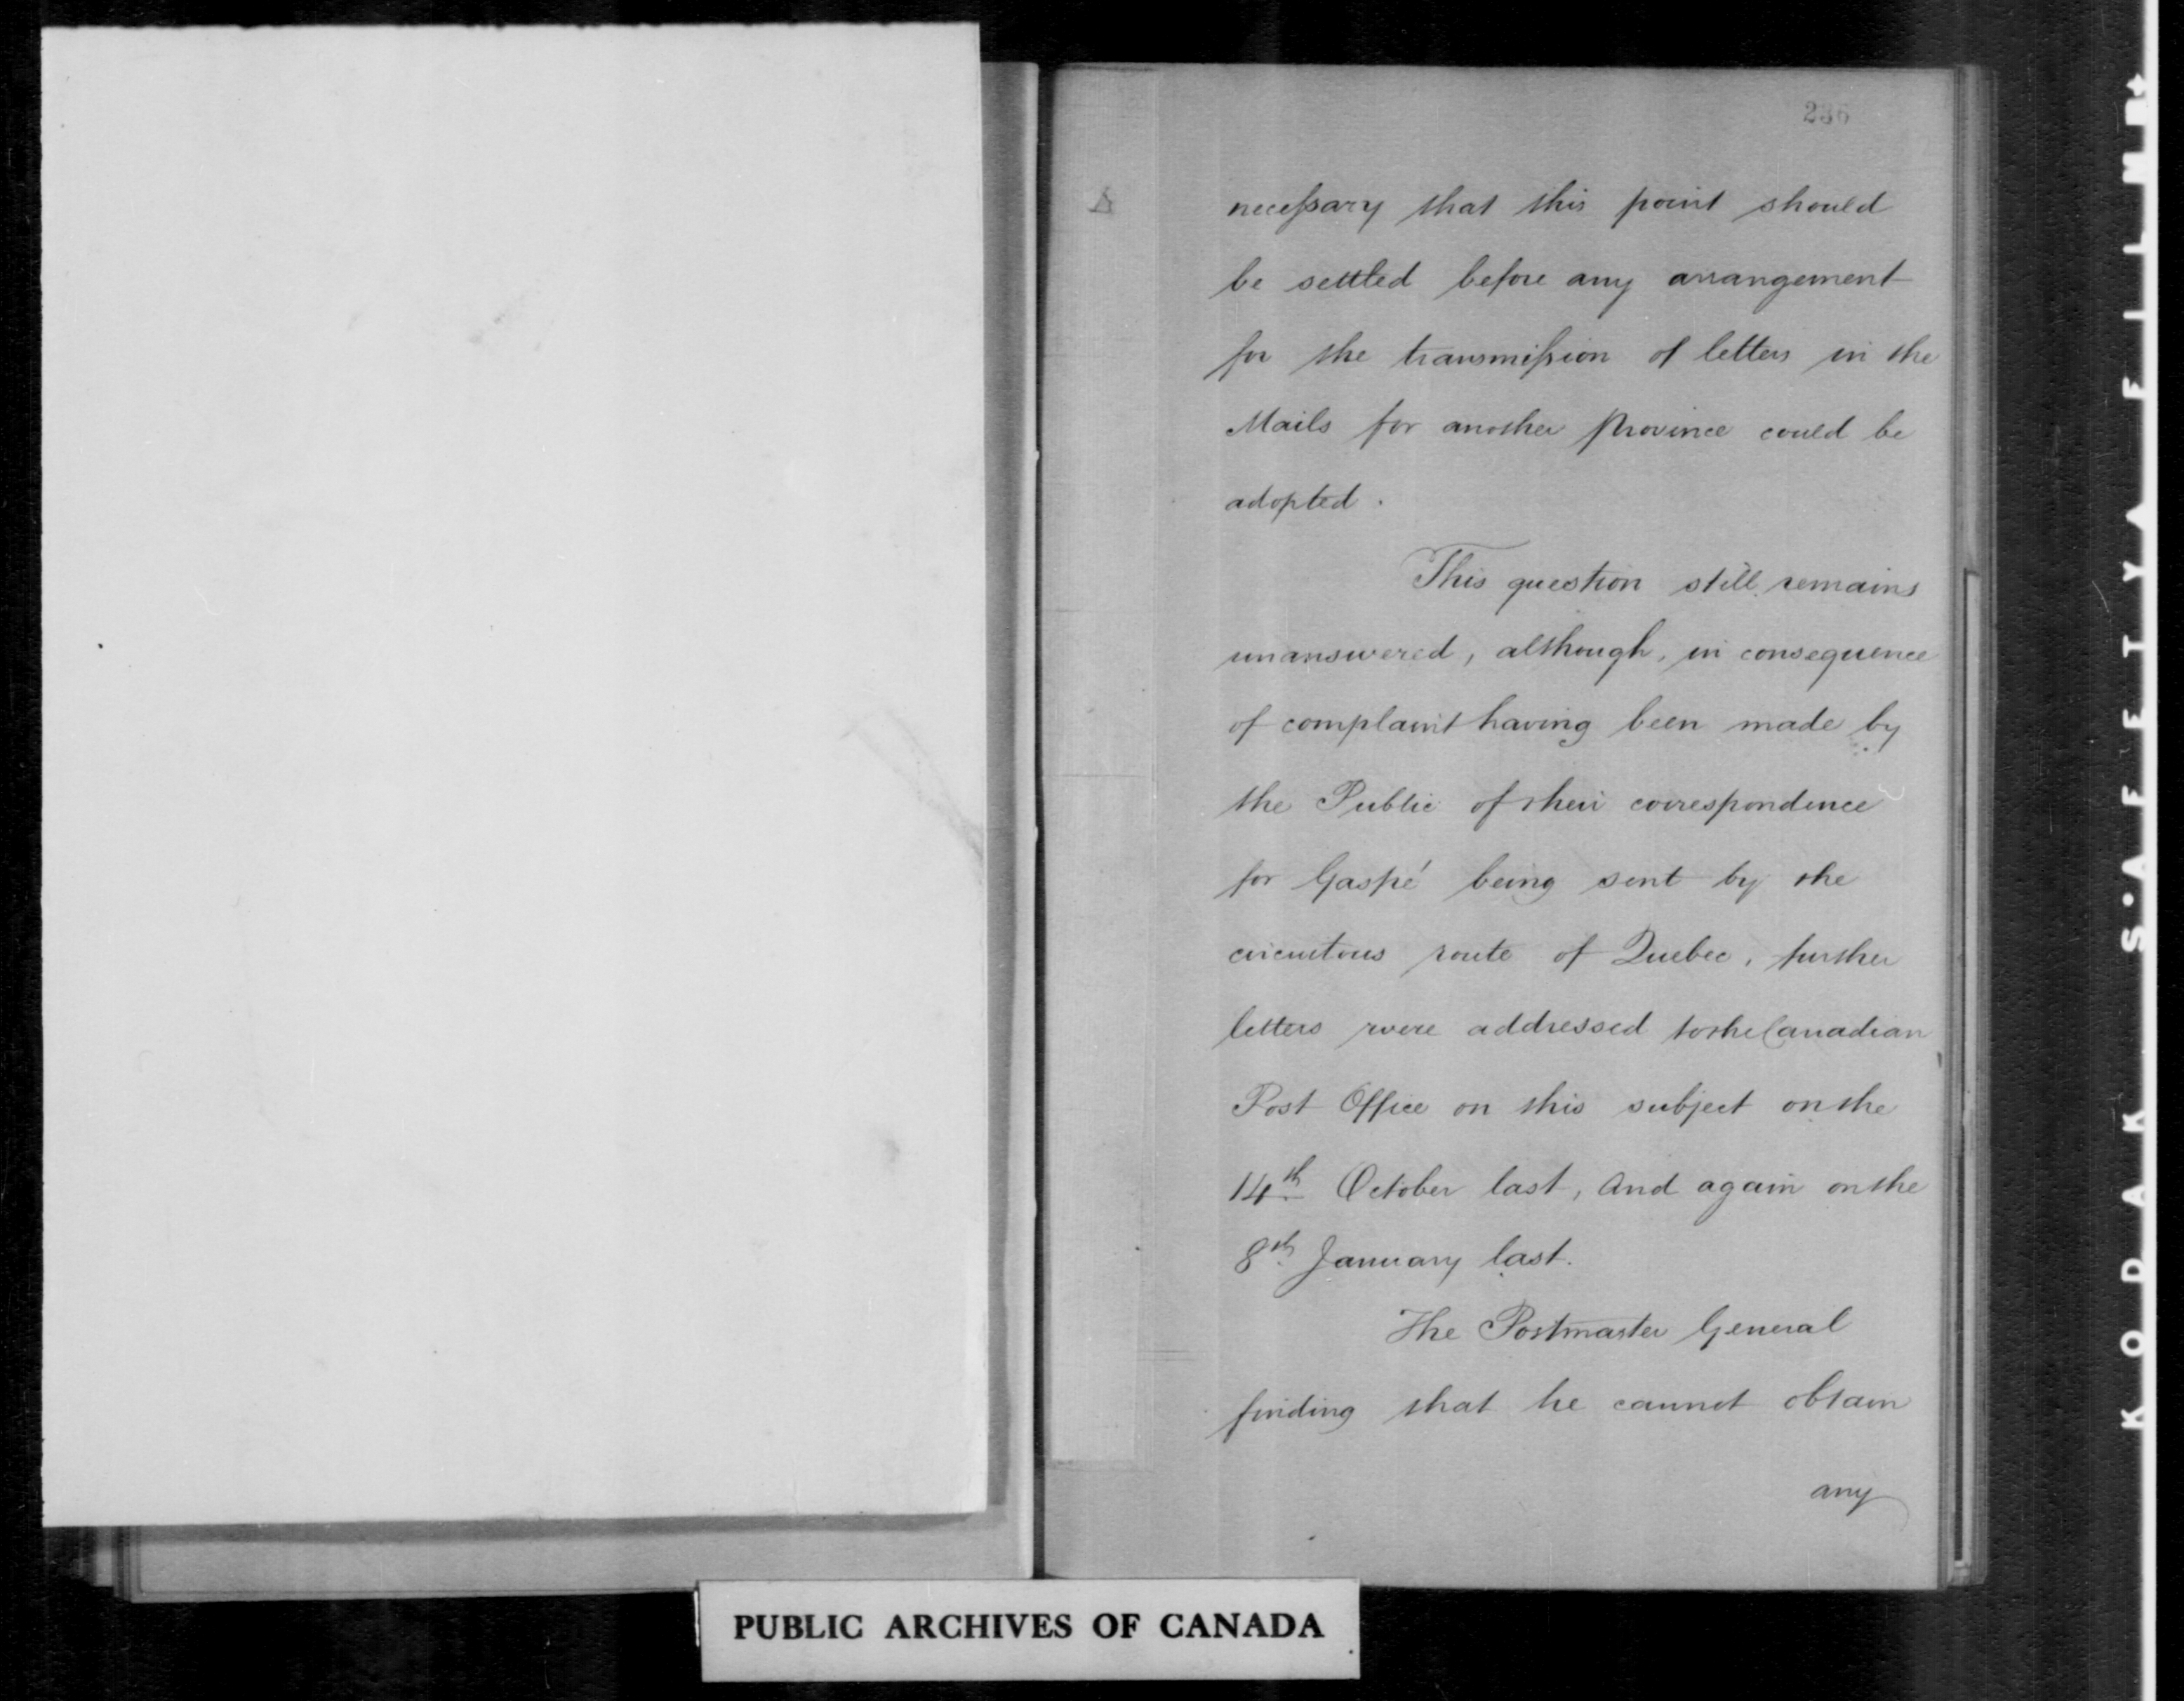 236
necessary that this point should
be settled before any arrangement
for the transmission of letters in the
Mails for another Province could be
adopted.
This question still remains
unanswered, although, in consequence
of complaint having been made by
the Public of their correspondence
for Gaspé being sent by the
circuitous route of Quebec, further
letters were addressed to the Canadian
Post Office on this subject on the
14th October last, and again on the
8th January last.
The Postmaster General
finding that he cannot obtain
any
PUBLIC ARCHIVES OF CANADA
KODAK S.AFETY A FILM